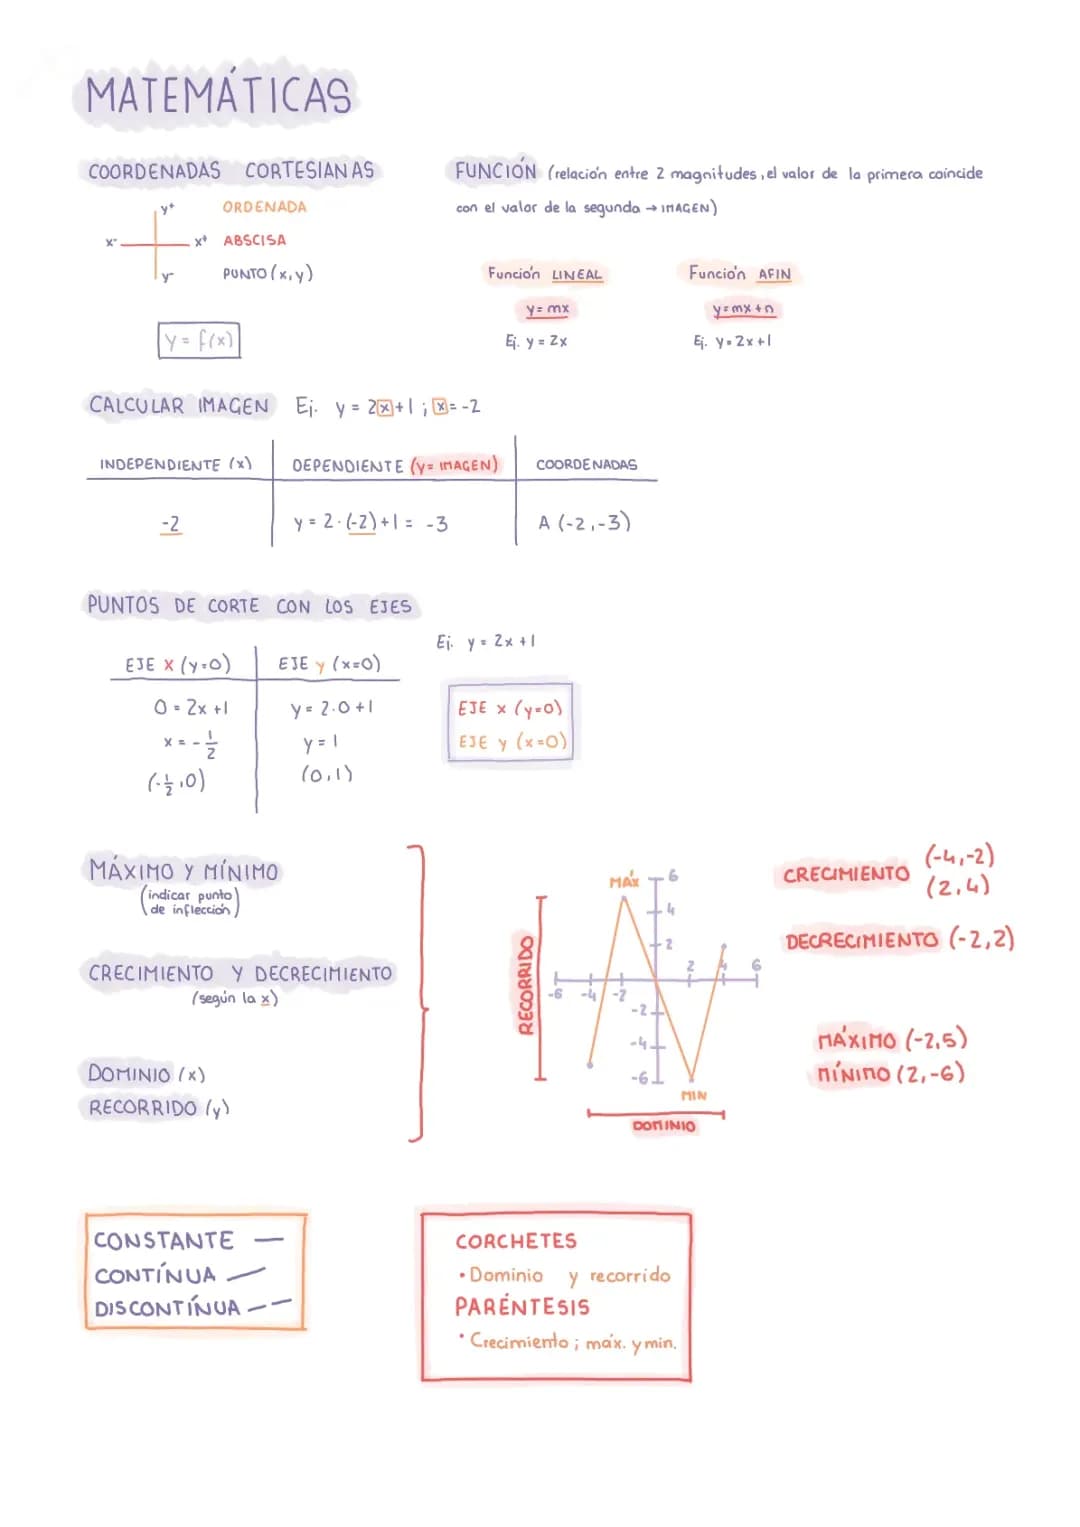 MATEMÁTICAS
COORDENADAS CORTESIANAS
y+ ORDENADA
x- x+ ABSCISA
y- PUNTO (x,y)
y = f(x)
FUNCIÓN (relación entre 2 magnitudes, el valor de la primera coincide
con el valor de la segunda → IMAGEN)
Función LINEAL
y = mx
Ej. y = 2x
Función AFIN
y = mx + n
Ej. y = 2x + 1
CALCULAR IMAGEN Ej. y = 2x + 1 ; x = -2
INDEPENDIENTE (x) DEPENDIENTE (y = IMAGEN) COORDENADAS
-2 y = 2·(-2)+1 = -3 A (-2,-3)
PUNTOS DE CORTE CON LOS EJES
Ej. y = 2x + 1
EJE x (y=0) EJE y (x=0)
0 = 2x + 1 y = 2·0 + 1
x = -1/2 y = 1
(-1/2,0) (0,1)
EJE x (y=0)
EJE y (x=0)
MÁXIMO Y MÍNIMO
(indicar punto
de inflección)
CRECIMIENTO Y DECRECIMIENTO
(según la x)
DOMINIO (x)
RECORRIDO (y)
RECORRIDO
MÁX
6
4
2
-6 -4 -2 2 4 6
-2
-4
-6
MIN
DOMINIO
CRECIMIENTO (-4,-2)
(2,4)
DECRECIMIENTO (-2,2)
MÁXIMO (-2,5)
MÍNIMO (2,-6)
CONSTANTE —
CONTÍNUA
DISCONTÍNUA
CORCHETES
• Dominio y recorrido
PARÉNTESIS
• Crecimiento ; máx. y min.